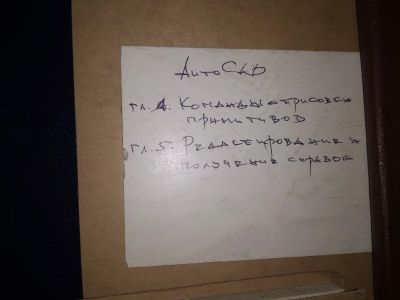 AutoCAD
гл. 4. Команды отрисовки
примитивов
гл. 5. Редактирование и
получение справок